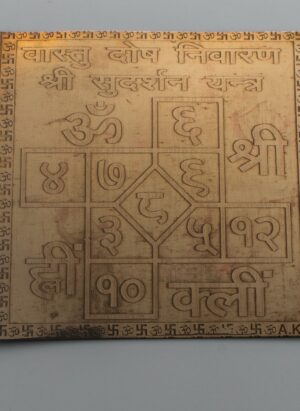 वास्तु दोष निवारण
श्री सुदर्शन यन्त्र
ॐ ६ श्री
४ ७ ६
८
३ ५ १२
ह्रीं १० क्लीं
A.K